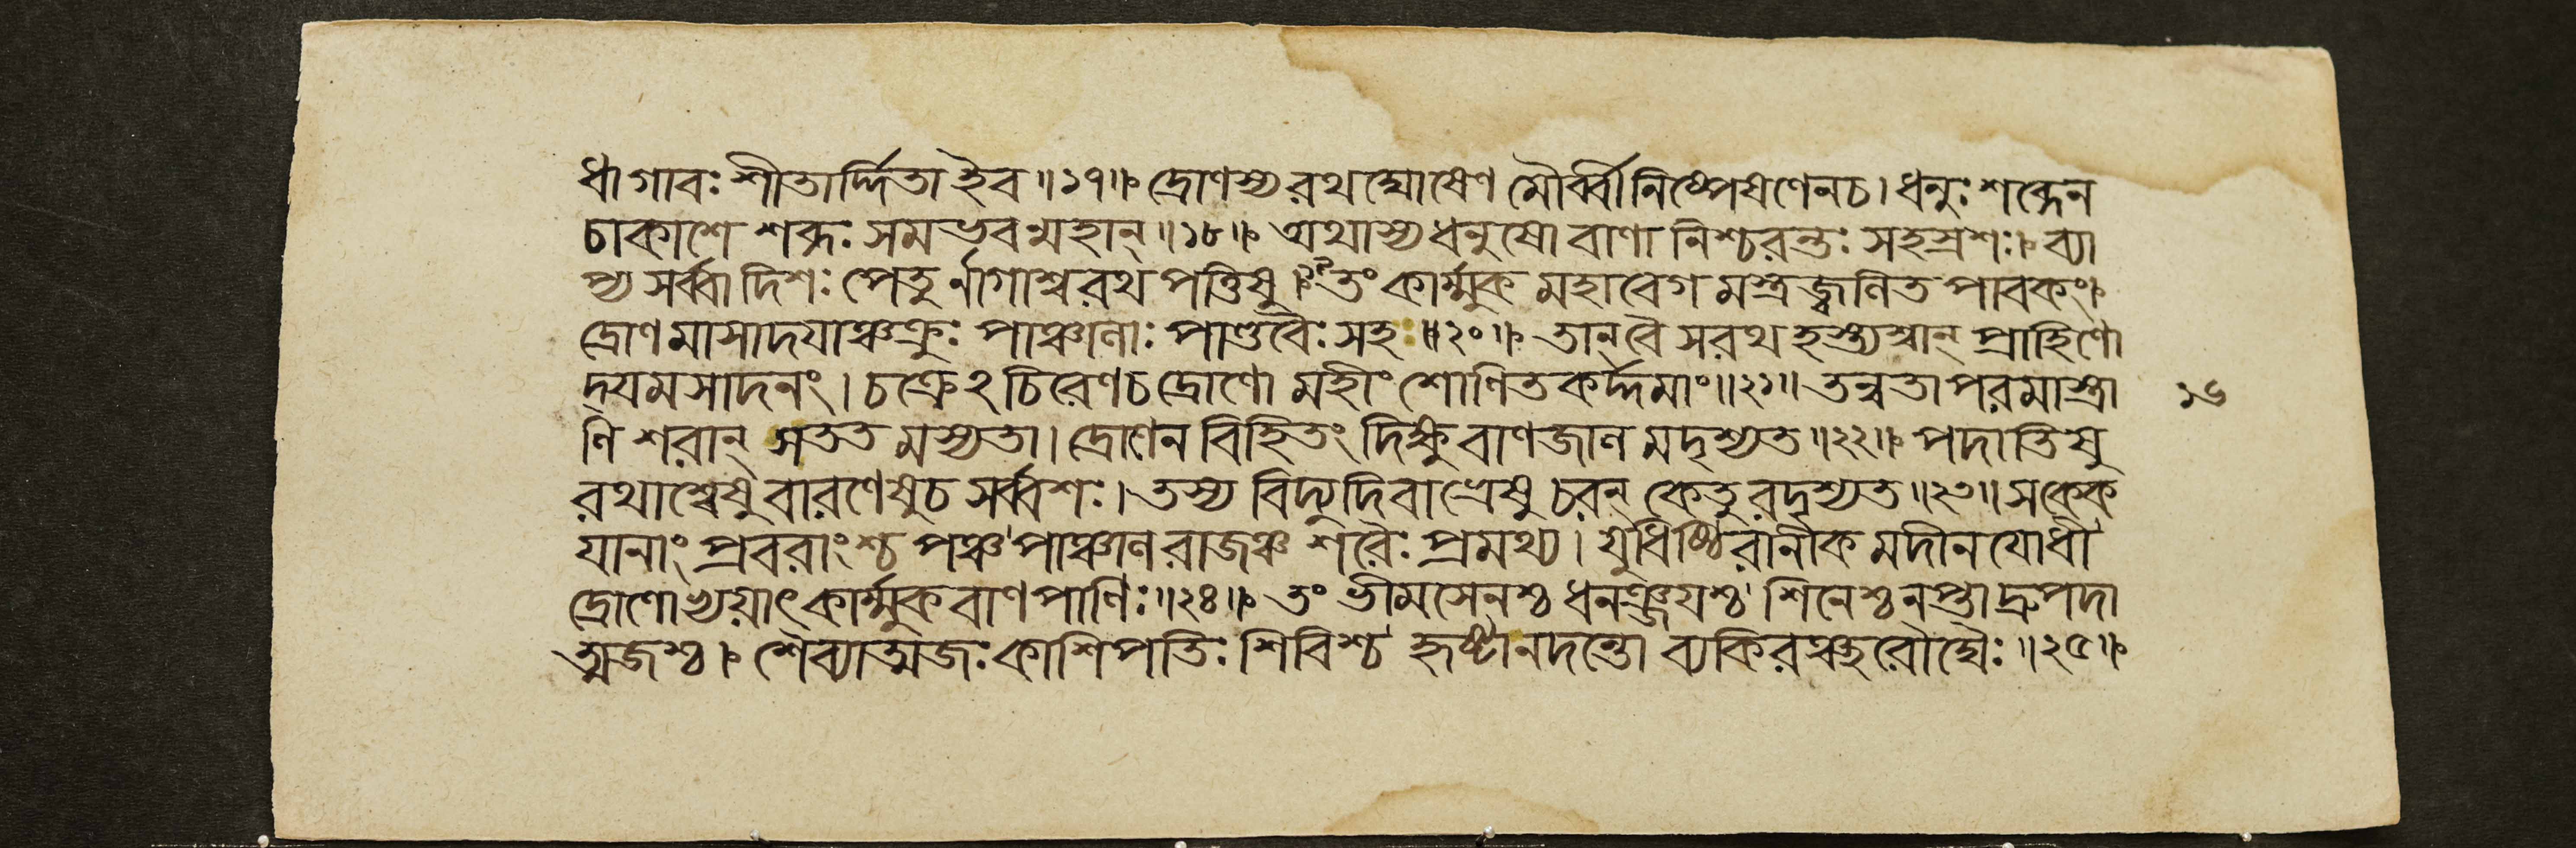 ধা গাবঃ শীতার্দ্দিতা ইব॥১৭॥ দ্রোণস্য রথঘোষেণ মৌর্ব্বীনিষ্পেষণেন চ। ধনুঃশব্দেন
চাকাশে শব্দঃ সমভবন্মহান্॥১৮॥ অথাস্য ধনুষো বাণা নিশ্চরন্তঃ সহস্রশঃ। ব্যা
প্য সর্ব্বা দিশঃ পেতুর্নাগাশ্বরথপত্তিষু। তং কার্ম্মুকমহাবেগমস্ত্রজ্বলিতপাবকং।
দ্রোণমাসাদযাঞ্চক্রুঃ পাঞ্চালাঃ পাণ্ডবৈঃ সহ॥২০॥ তান্ বৈ সরথহস্ত্যশ্বান্ প্রাহিণো
দ্যমসাদনং। চক্রেঽচিরেণ চ দ্রোণো মহীং শোণিতকর্দ্দমাং॥২১॥ তন্বতা পরমাস্ত্রা
ণি শরান্ সততমস্যতা। দ্রোণেন বিহিতং দিক্ষু বাণজালমদৃশ্যত॥২২॥ পদাতিষু
রথাশ্বেষু বারণেষু চ সর্ব্বশঃ। তস্য বিদ্যুদিবাভ্রেষু চরন্ কেতুরদৃশ্যত॥২৩॥ স কেক
যানাং প্রবরাংশ্চ পঞ্চ পাঞ্চালরাজঞ্চ শরৈঃ প্রমথ্য। যুধিষ্ঠিরানীকমদীনযোধী
দ্রোণোভ্যয়াৎ কার্ম্মুকবাণপাণিঃ॥২৪॥ তং ভীমসেনশ্চ ধনঞ্জযশ্চ শিনেশ্চ নপ্তা দ্রুপদা
ত্মজশ্চ। শৈব্যাত্মজঃ কাশিপতিঃ শিবিশ্চ হৃষ্টা নদন্তো ব্যকিরঞ্ছরৌঘৈঃ॥২৫॥
১৬